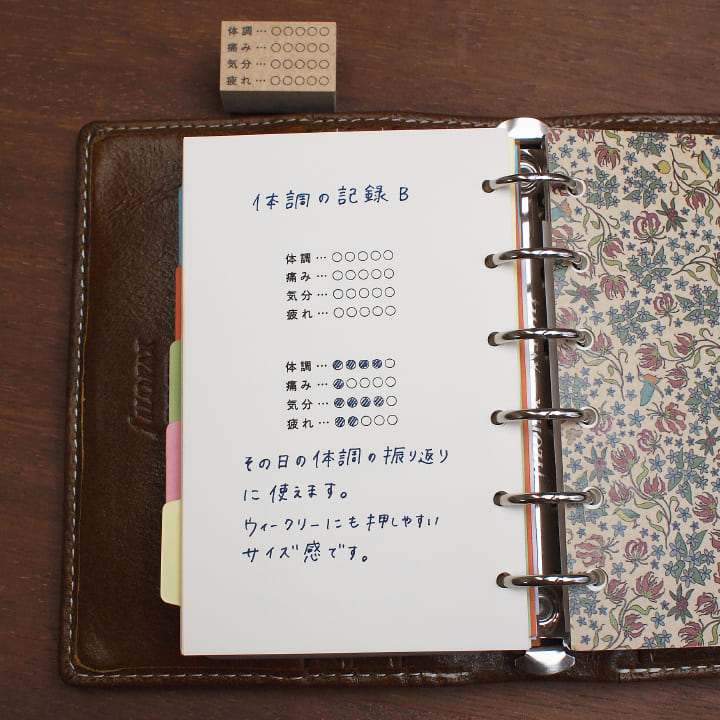 体調…○○○○○
痛み…○○○○○
気分…○○○○○
疲れ…○○○○○
体調の記録 B
体調…○○○○○
痛み…○○○○○
気分…○○○○○
疲れ…○○○○○
体調…●●●●○
痛み…●○○○○
気分…●●●●○
疲れ…●●○○○
その日の体調の振り返り
に使えます。
ウィークリーにも押しやすい
サイズ感です。